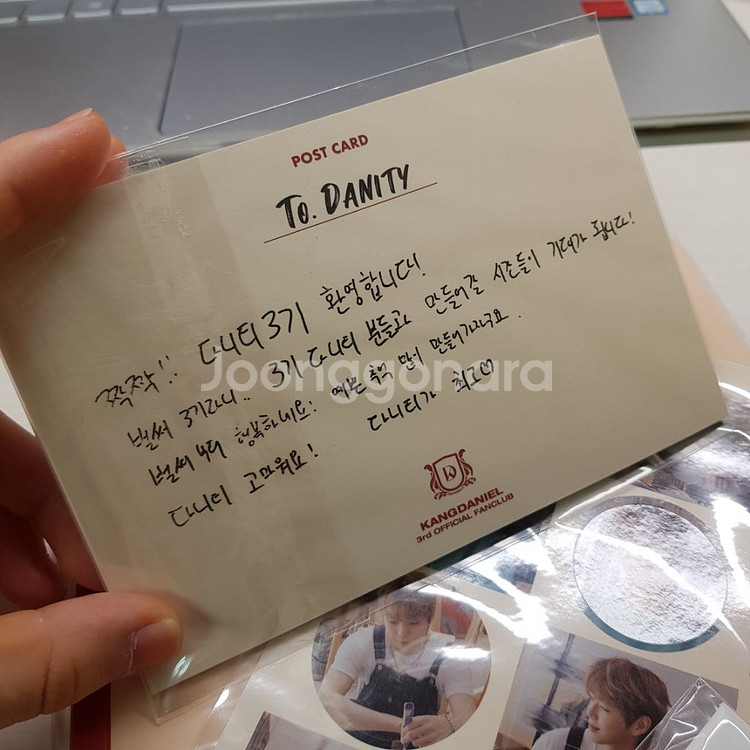 POST CARD
To. DANITY
짝짝!! 다니티3기 환영합니다!
벌써 3기라니.. 3기 다니티 분들과 만들어갈 시간들이 기대가 됩니다!
벌써부터 행복하네요! 예쁜 추억 많이 만들어가자구요.
다니티 고마워요! 다니티가 최고♡
Joonggonara
KANGDANIEL
3rd OFFICIAL FANCLUB